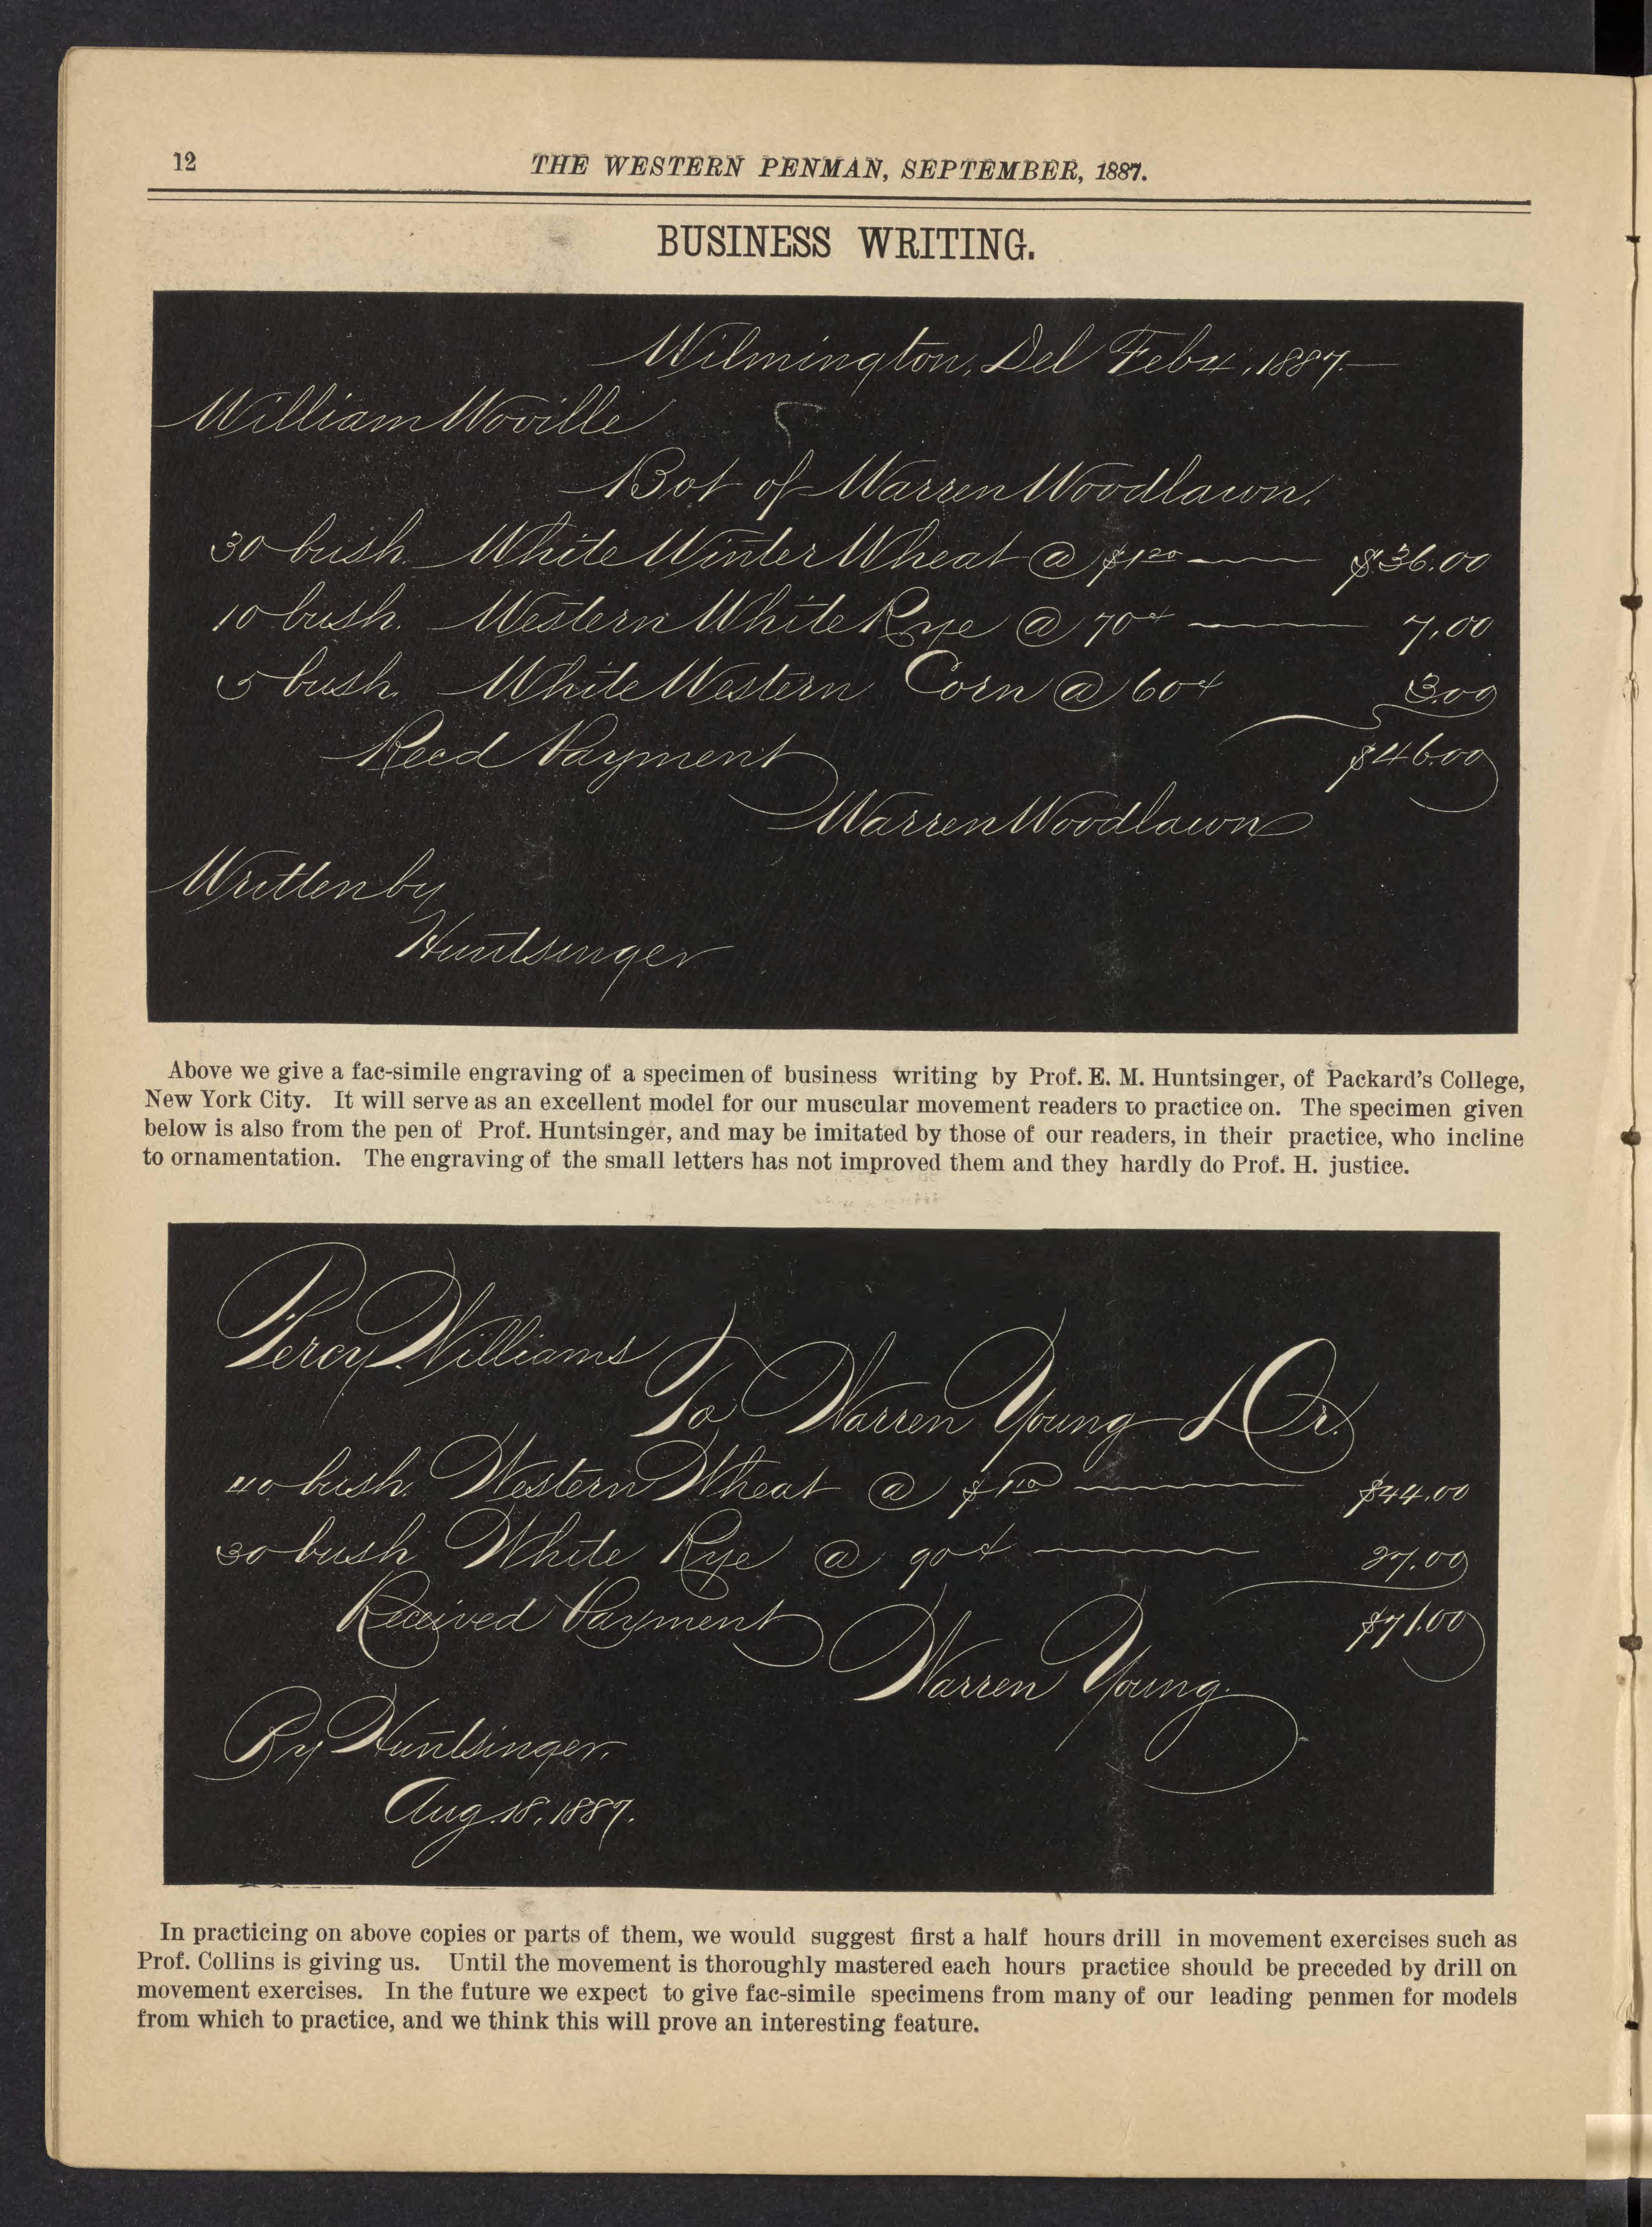 12
THE WESTERN PENMAN, SEPTEMBER, 1887.
BUSINESS WRITING.
Wilmington, Del Feb 4, 1887.
William Woville
Bot of Warren Woodlawn.
30 bush. White Winter Wheat @ $1 20 $36.00
10 bush. Western White Rye @ 70¢ 7.00
5 bush. White Western Corn @ 60¢ 3.00
Recd Payment $46.00
Warren Woodlawn
Written by
Huntsinger
Above we give a fac-simile engraving of a specimen of business writing by Prof. E. M. Huntsinger, of Packard's College,
New York City. It will serve as an excellent model for our muscular movement readers to practice on. The specimen given
below is also from the pen of Prof. Huntsinger, and may be imitated by those of our readers, in their practice, who incline
to ornamentation. The engraving of the small letters has not improved them and they hardly do Prof. H. justice.
Percy Williams
To Warren Young Dr.
40 bush. Western Wheat @ $1 10 $44.00
30 bush White Rye @ 90¢ 27.00
Received Payment $71.00
Warren Young.
By Huntsinger.
Aug. 18, 1887.
In practicing on above copies or parts of them, we would suggest first a half hours drill in movement exercises such as
Prof. Collins is giving us. Until the movement is thoroughly mastered each hours practice should be preceded by drill on
movement exercises. In the future we expect to give fac-simile specimens from many of our leading penmen for models
from which to practice, and we think this will prove an interesting feature.